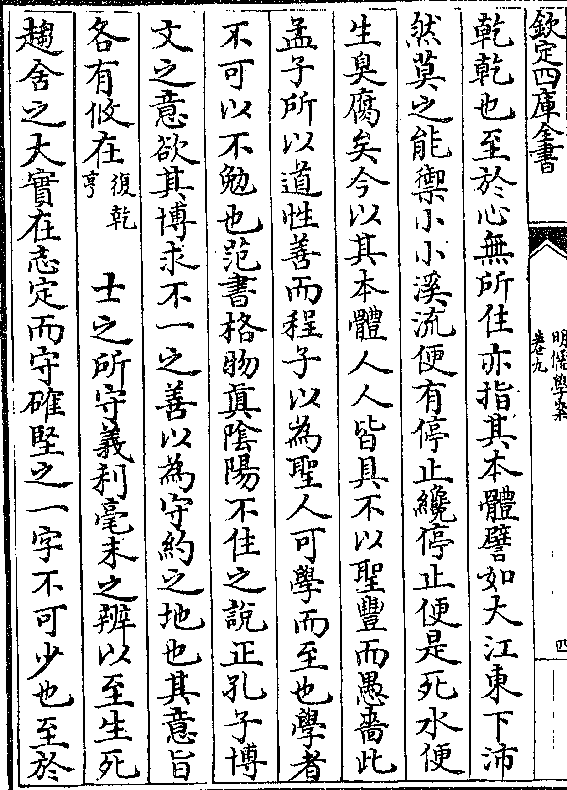 欽定四庫全書
明儒學案
卷九
四
乾乾也至於心無所住亦指其本體譬如大江東下沛
然莫之能禦小小溪流便有停止纔停止便是死水便
生臭腐矣今以其本體人人皆具不以聖豐而愚嗇此
孟子所以道性善而程子以為聖人可學而至也學者
不可以不勉也范書格物眞陰陽不住之說正孔子博
文之意欲其博求不一之善以為守約之地也其意旨
各有攸在復乾
亨
士之所守義利毫末之辨以至生死
趨舍之大實在志定而守確堅之一字不可少也至於